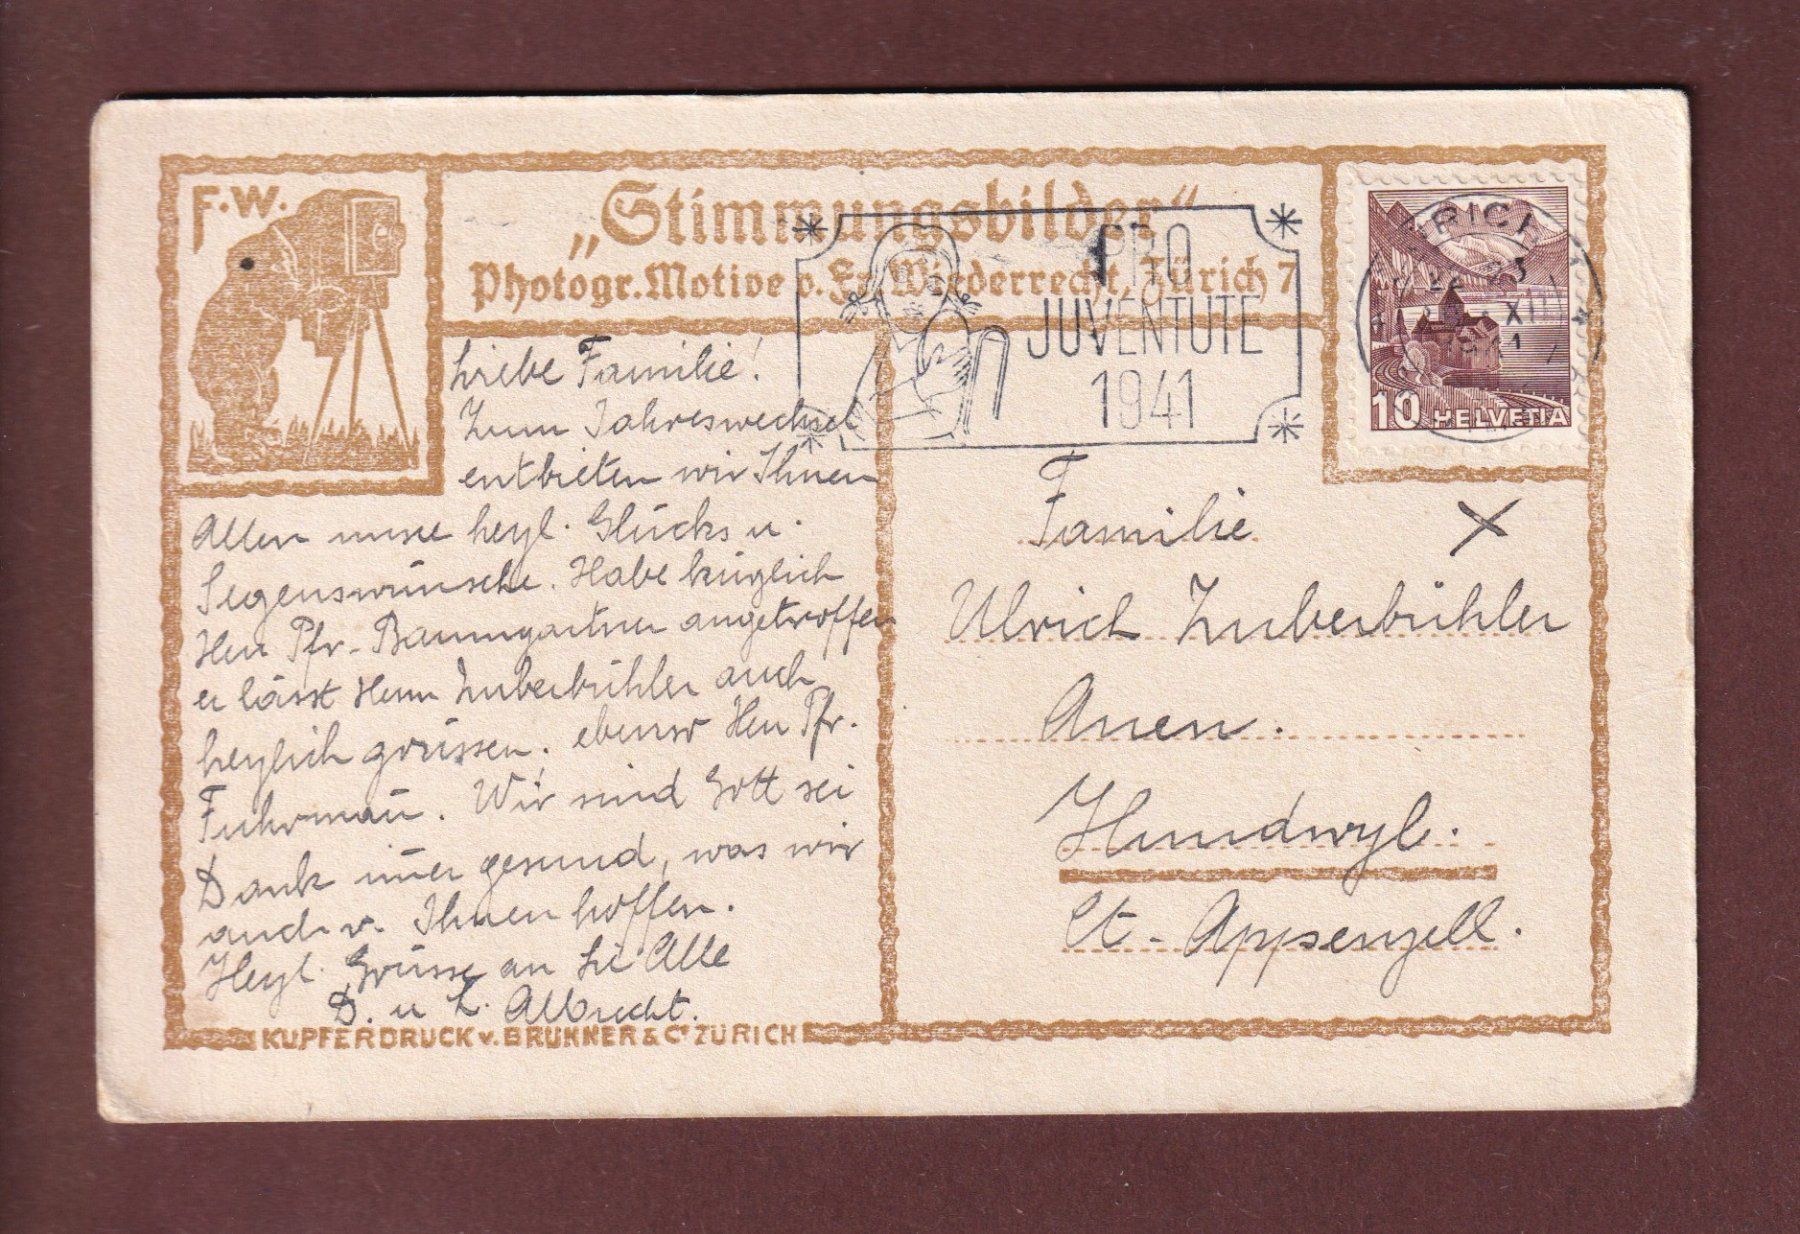 F.W.
„Stimmungsbilder“
Photogr. Motive v. Fr. Wiederrecht, Zürich 7
PRO
JUVENTUTE
1941
10 HELVETIA
Liebe Familie!
Zum Jahreswechsel
entbieten wir Ihnen
Allen unsre herzl. Glücks u.
Segenswünsche. Habe kürzlich
Herr Pfr. Baumgartner angetroffen
er lässt Herrn Zuberbühler auch
herzlich grüssen, ebenso Herr Pfr.
Fuhrmañ. Wir sind Gott sei
Dank im̄er gesund, was wir
auch v. Ihnen hoffen.
Herzl. Grüsse an Sie Alle
D. u L. Albrecht.
Familie
Ulrich Zuberbühler
Auen.
Hundwyl.
Ct. Appenzell.
KUPFERDRUCK v. BRUNNER & Cº ZÜRICH